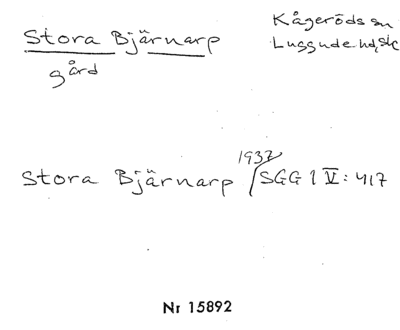 Stora Bjärnarp
gård
Kågeröds sn
Luggude hd, Sk
Stora Bjärnarp 1937/SGG 1 V: 417
Nr 15892